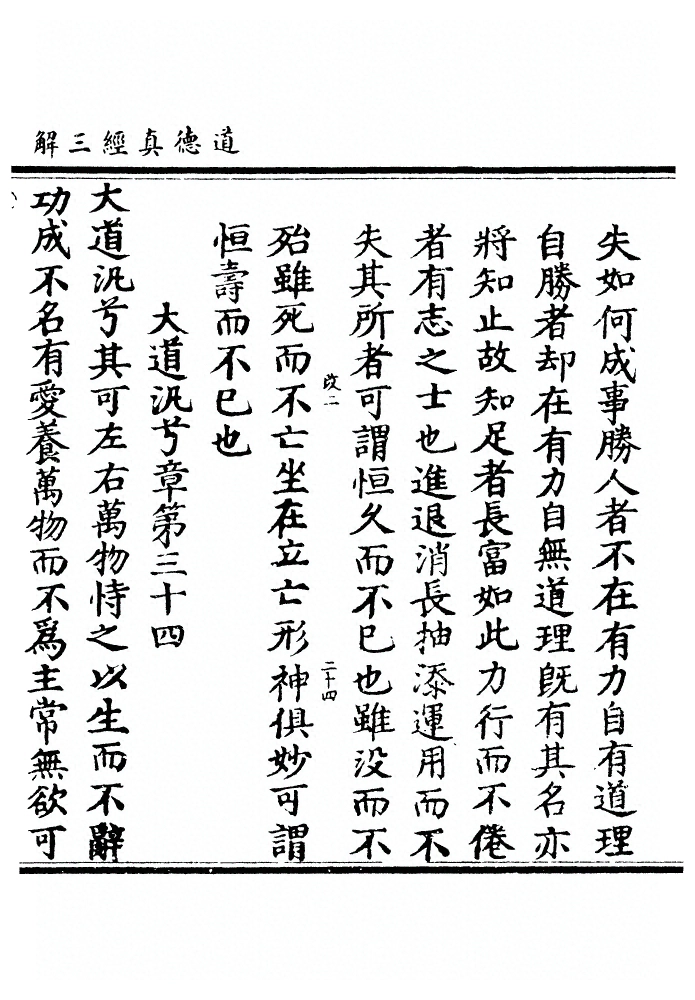 道德真經三解
失如何成事勝人者不在有力自有道理
自勝者却在有力自無道理既有其名亦
將知止故知足者長富如此力行而不倦
者有志之士也進退消長抽添運用而不
失其所者可謂恒久而不已也雖没而不
改二
二十四
殆雖死而不亡坐在立亡形神俱妙可謂
恒壽而不已也
大道汎兮章第三十四
大道汎兮其可左右萬物恃之以生而不辭
功成不名有愛養萬物而不爲主常無欲可